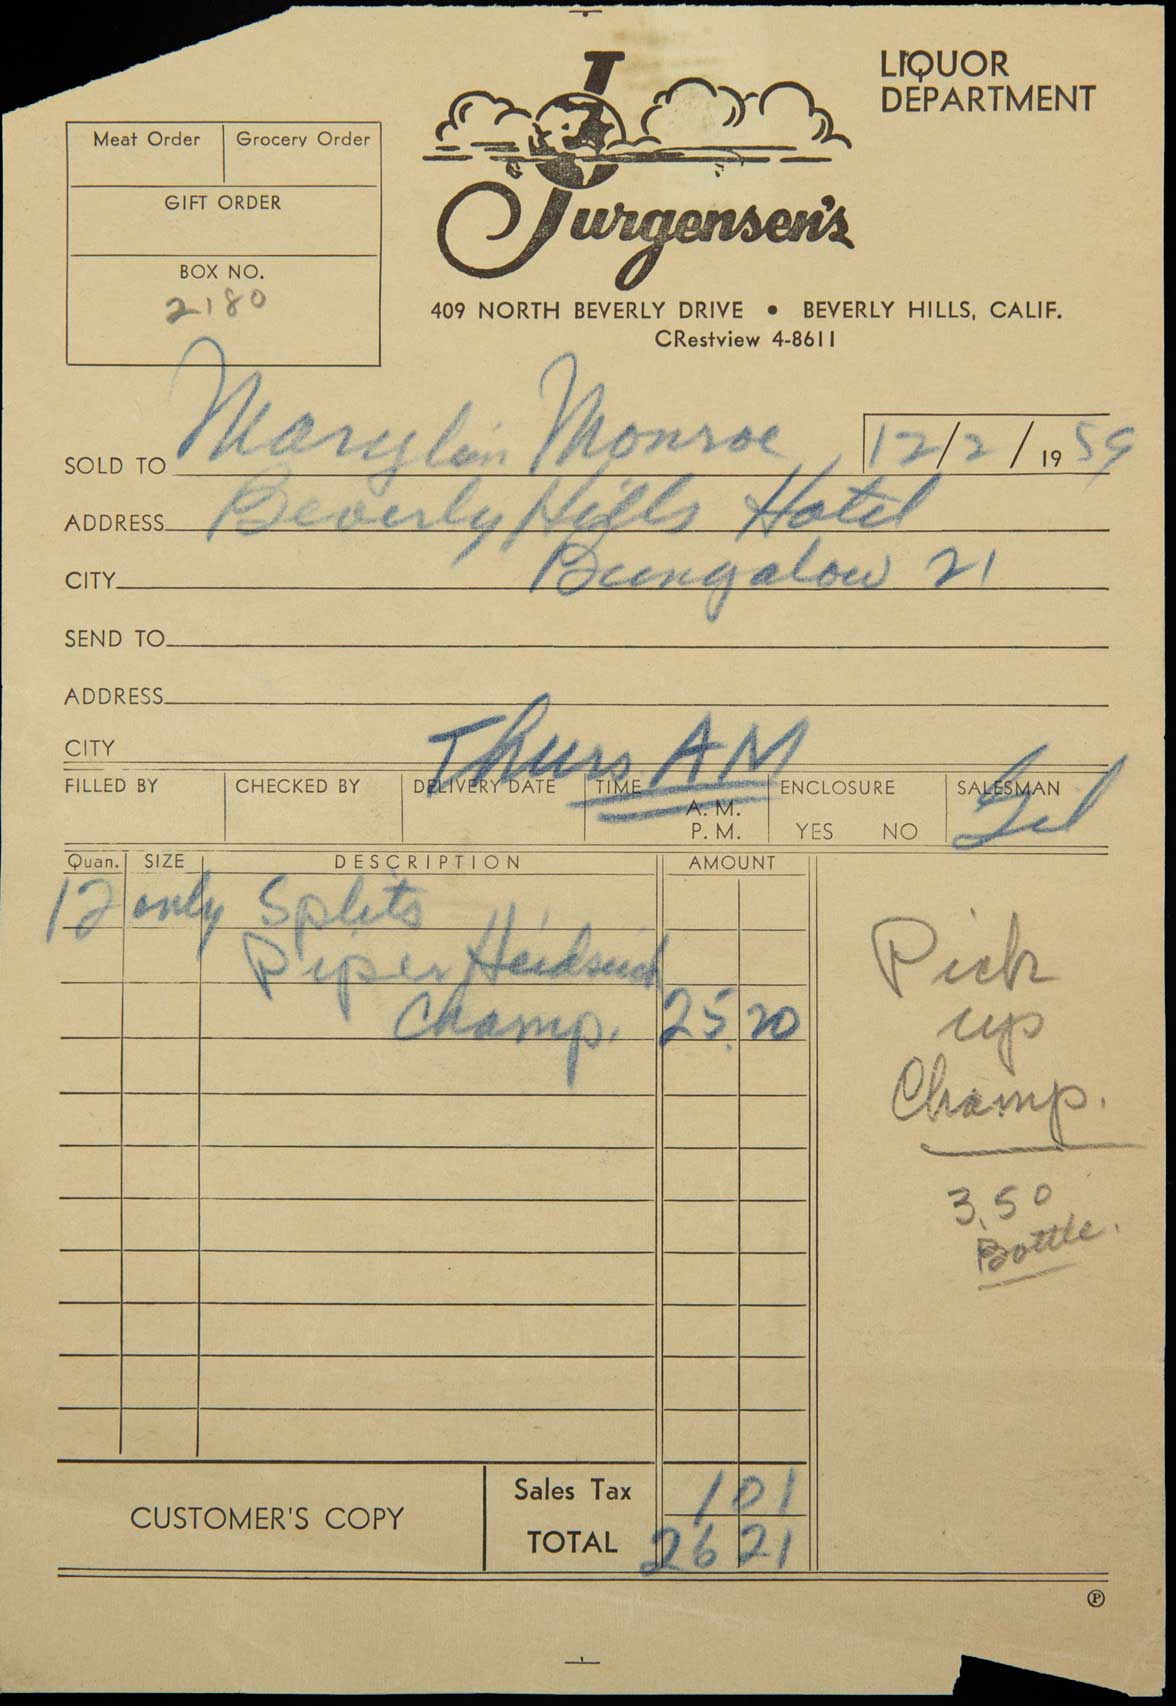 LIQUOR
DEPARTMENT
Meat Order Grocery Order
GIFT ORDER
BOX NO.
2180
Jurgensen's
409 NORTH BEVERLY DRIVE • BEVERLY HILLS, CALIF.
CRestview 4-8611
SOLD TO Marylin Monroe 12/2/1959
ADDRESS Beverly Hills Hotel
CITY Bungalow 21
SEND TO
ADDRESS
CITY
Thurs AM
FILLED BY CHECKED BY DELIVERY DATE TIME ENCLOSURE SALESMAN
A. M.
P. M. YES NO
Quan. SIZE DESCRIPTION AMOUNT
12 only Splits
Piper Heidsieck
Champ. 25.20
Pick
up
Champ.
3.50
Bottle.
CUSTOMER'S COPY
Sales Tax 1 01
TOTAL 26 21
P